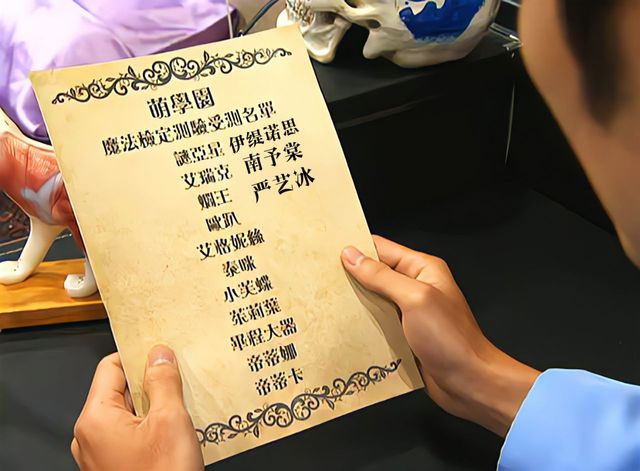 萌學園
魔法檢定測驗受測名單
謎亞星 伊缇诺思
艾瑞克 南予棠
嫺王 严艺冰
歐趴
艾格妮絲
泰咪
小芙蝶
茱莉葉
畢程大器
帝蒂娜
帝蒂卡